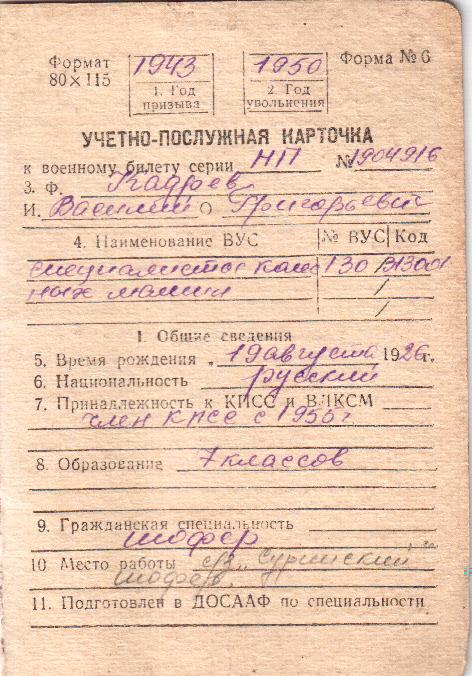 Формат 80×115
1943
1. Год призыва
1950
2. Год увольнения
Форма № 6
УЧЕТНО-ПОСЛУЖНАЯ КАРТОЧКА
к военному билету серии НП № 1904916
3. Ф. Кадреев
И. Василий О Григорьевич
4. Наименование ВУС № ВУС Код
специалистов колес 130
ных машин
1. Общие сведения
5. Время рождения „ 19 августа 1926 г.
6. Национальность русский
7. Принадлежность к КПСС и ВЛКСМ
член КПСС с 1956 г
8. Образование 7 классов
9. Гражданская специальность
шофер
10 Место работы с/з „Сурийский"
шофер.
11. Подготовлен в ДОСААФ по специальности